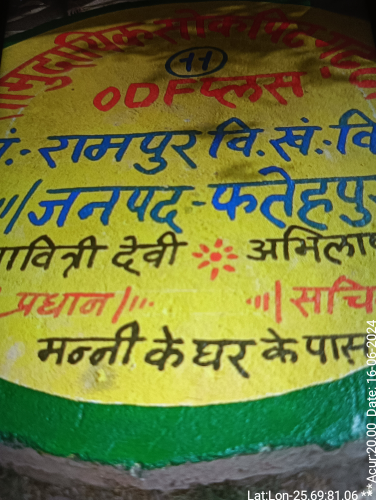 ामुदायिक सोकपिट
11
ODF प्लस
ं.- रामपुर वि.खं.- वि
//जनपद - फतेहपु
ावित्री देवी अभिला
प्रधान सचि
मन्नी के घर के पास
Lat:Lon-25,69:81.06 *** Acur:20.00 Date: 16-06-2024